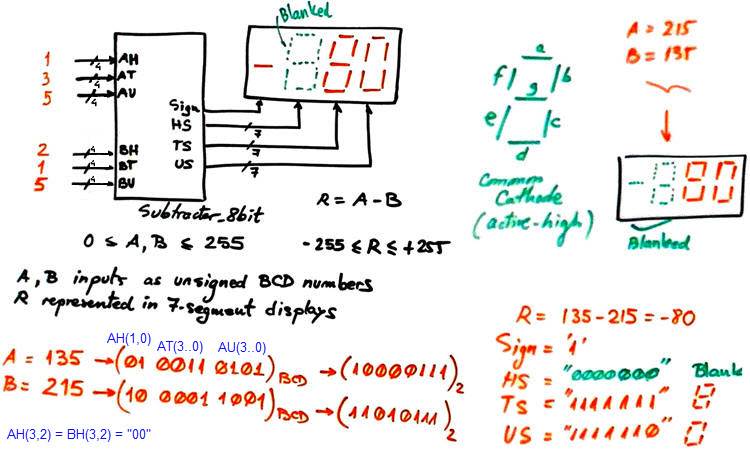 Blanked
1 4 AH
3 4 AT
5 4 AU
Sign
HS 7
TS 7
US 7
2 4 BH
1 4 BT
5 4 BU
Subtractor_8bit
R = A - B
0 ≤ A, B ≤ 255
-255 ≤ R ≤ +255
A, B inputs as unsigned BCD numbers
R represented in 7-segment displays
a
f b
g
e c
d
Common
Cathode
(active-high)
A = 215
B = 135
-80
Blanked
AH(1,0) AT(3..0) AU(3..0)
A = 135 → (01 0011 0101)BCD → (10000111)2
B = 215 → (10 0001 1001)BCD → (11010111)2
AH(3,2) = BH(3,2) = "00"
R = 135 - 215 = -80
Sign = '1'
HS = "0000000" Blank
TS = "1111111" 8
US = "1111110" 0